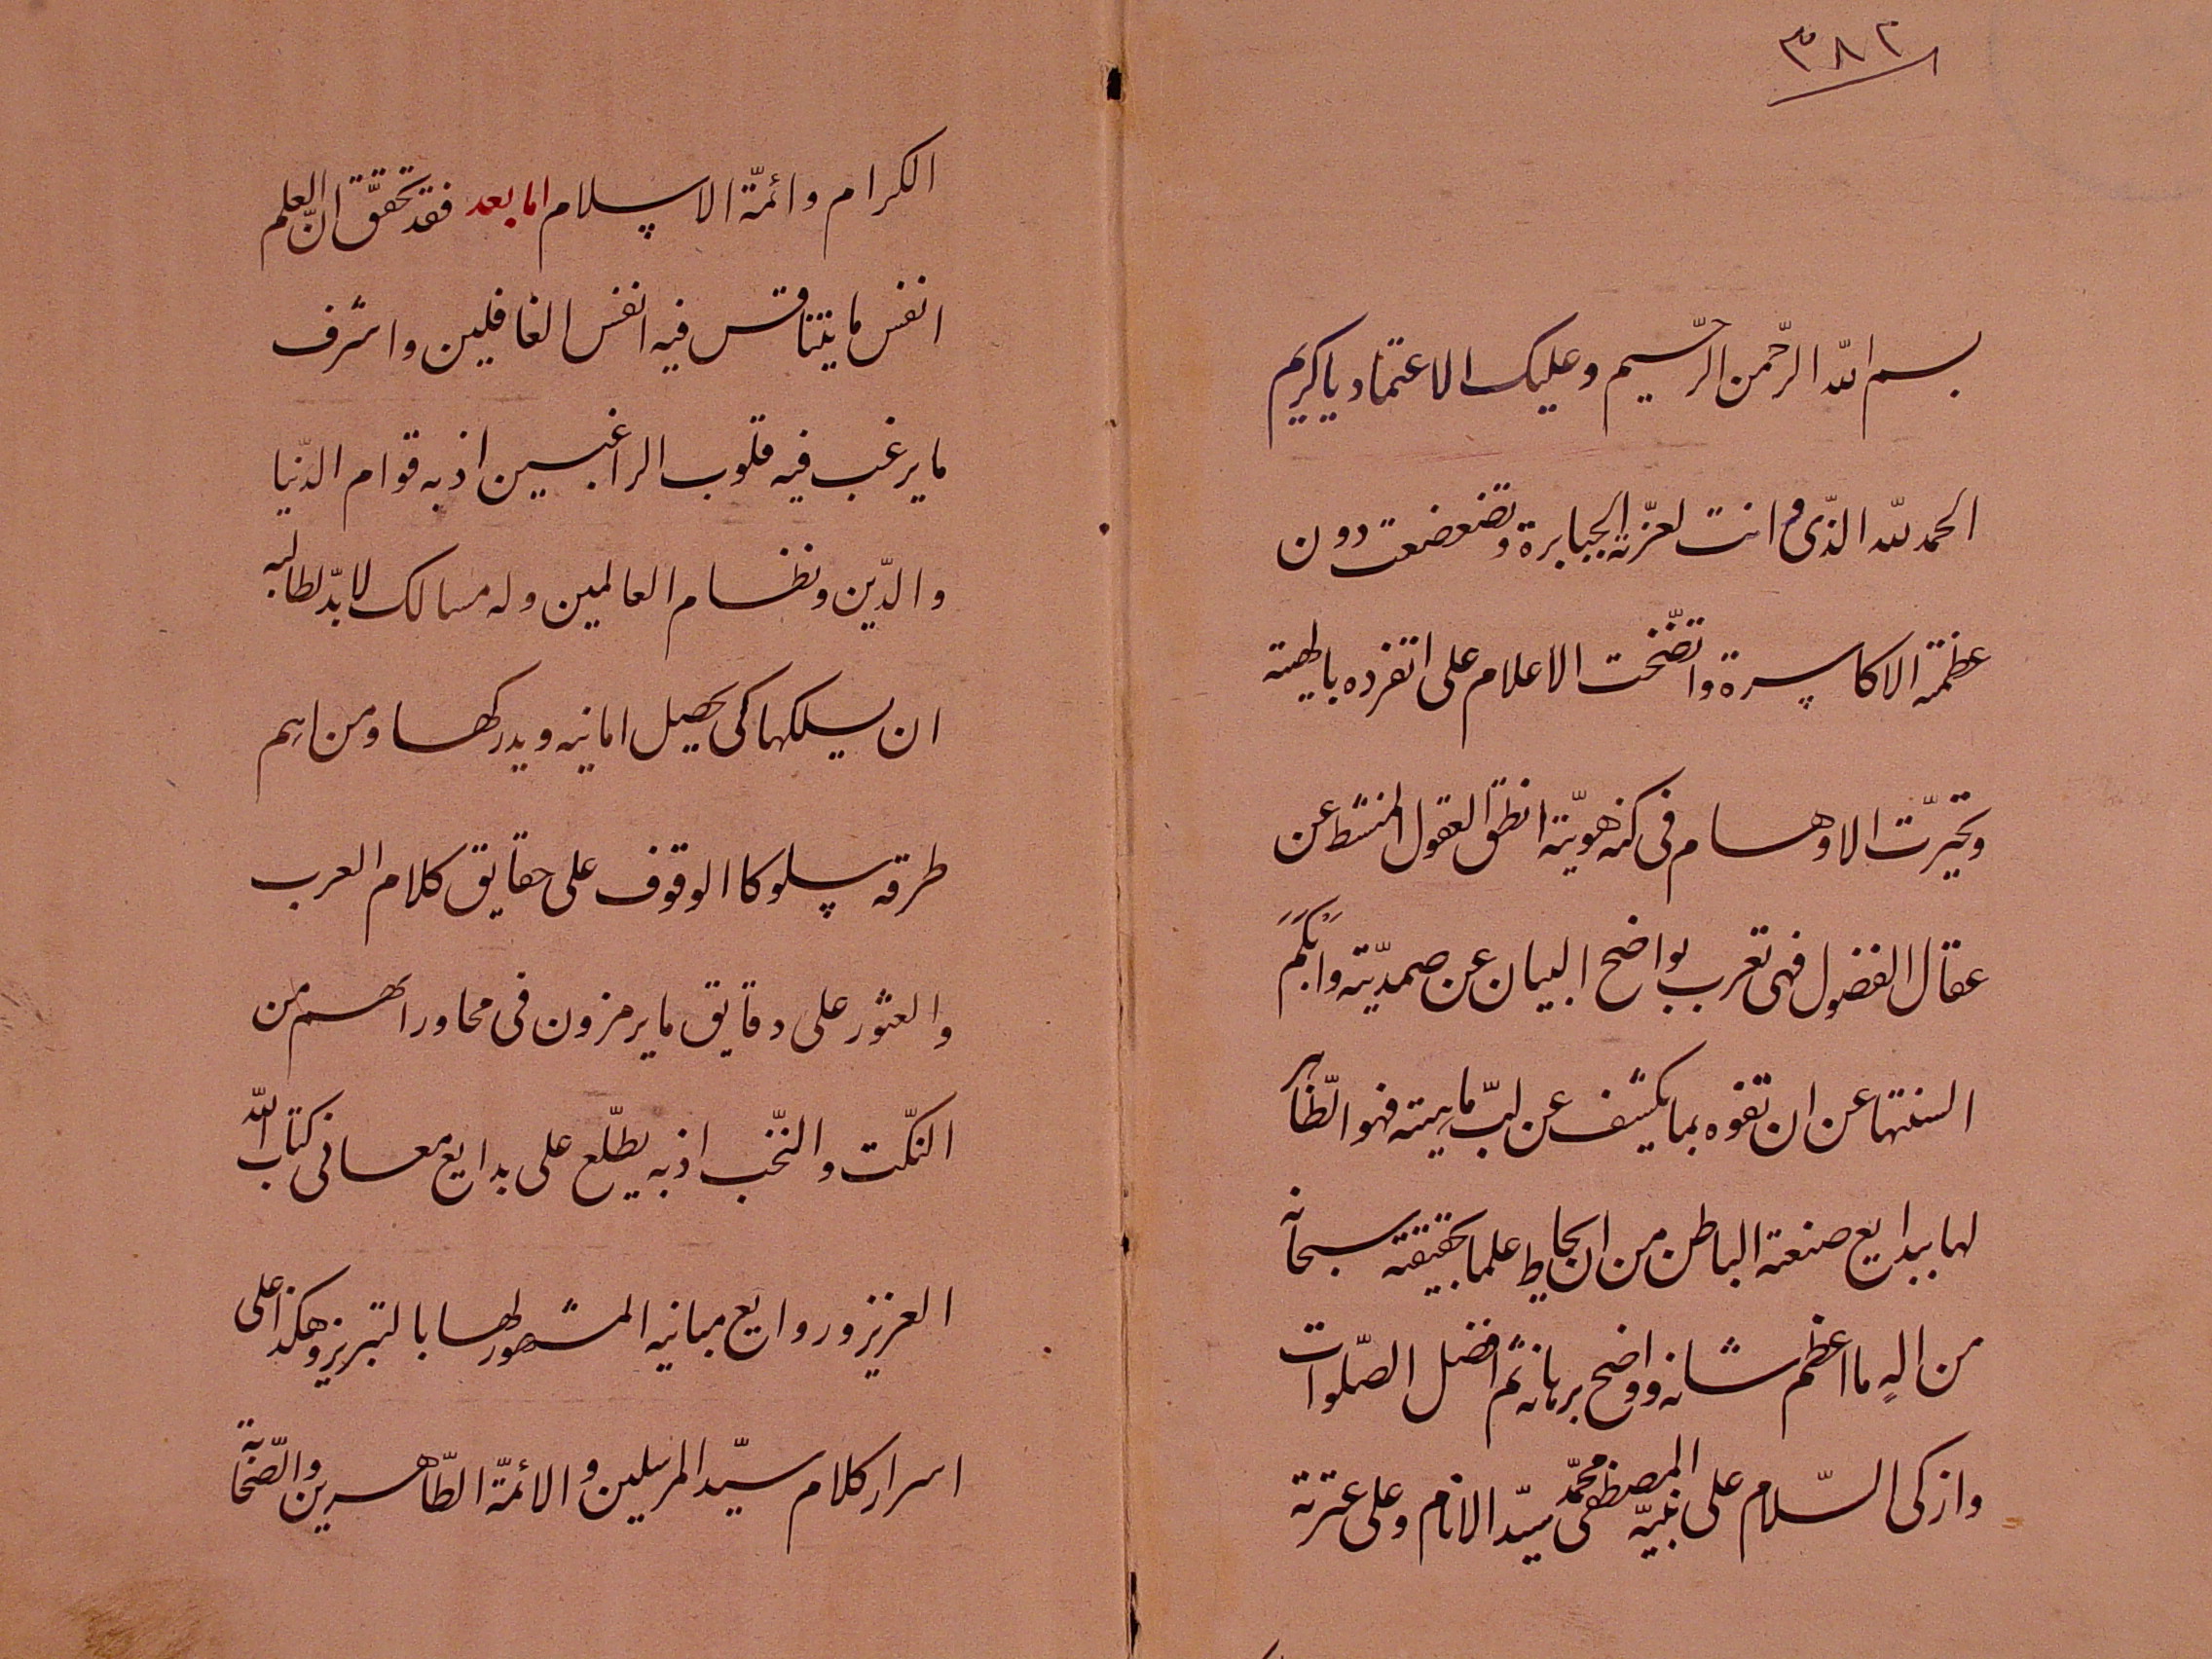 ٣٨٢
بسم الله الرّحمن الرّحيم وعليك الاعتماد يا كريم
الحمد لله الذّى دانت لعزّته الجبابرة وتضعضعت دون
عظمته الاكاسرة واتّضحت الاعلام على تفرده بالهيته
وتحيرّت الاوهام فى كنه هويّته انطق العقول المنشط عن
عقال الفضول فهى تعرب بواضح البيان عن صمديّته وابكم
السنتها عن ان تفوه بما يكشف عن لبّ ماهيته فهو الظّاهر
لها ببدايع صنعته الباطن من ان يحاط علما بحقيقته سبحانه
من الهٍ ما اعظم شانه واوضح برهانه ثم افضل الصّلوات
وازكى السّلام على نبيّه المصطفى محمّد سيّد الانام وعلى عترته
الكرام وائمّة الاسلام اما بعد فقد تحقّق انّ العلم
انفس ما يتنافس فيه انفس الغافلين واشرف
ما يرغب فيه قلوب الراغبين اذ به قوام الدّنيا
والدّين ونظام العالمين وله مسالك لا بدّ لطالبه
ان يسلكها كى يحصل امانيه ويدركها ومن اهم
طرقه سلوكا الوقوف على حقايق كلام العرب
والعثور على دقايق ما يرمزون فى محاوراتهم من
النكّت والنّخب اذ به يطّلع على بدايع معانى كتاب الله
العزيز وروايع مبانيه المشهور لها بالتبريز وهكذا على
اسرار كلام سيّد المرسلين والائمّة الطّاهرين والصّحابة